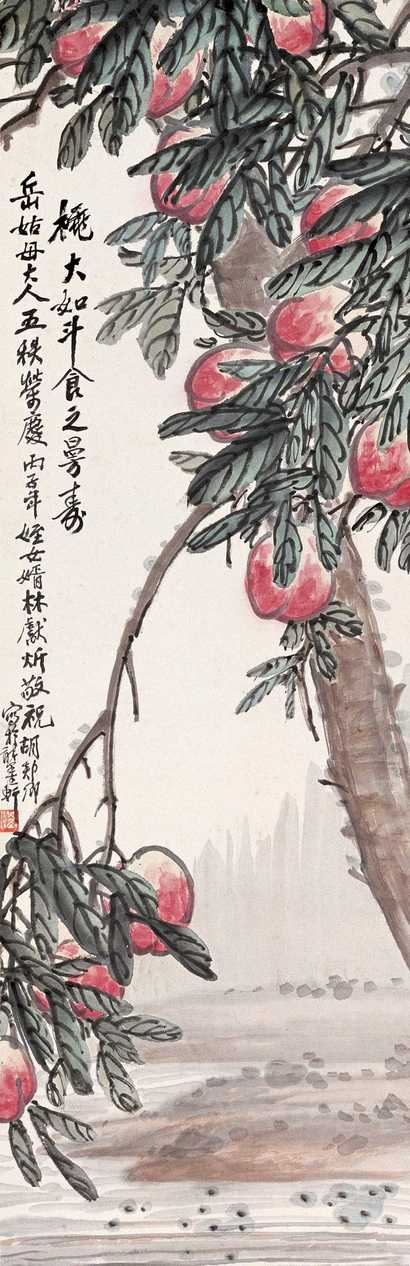 桃大如斗食之曼寿
岳姑母大人五秩荣慶 丙子年 姪女婿林獻炘敬祝 胡郯卿
寫於